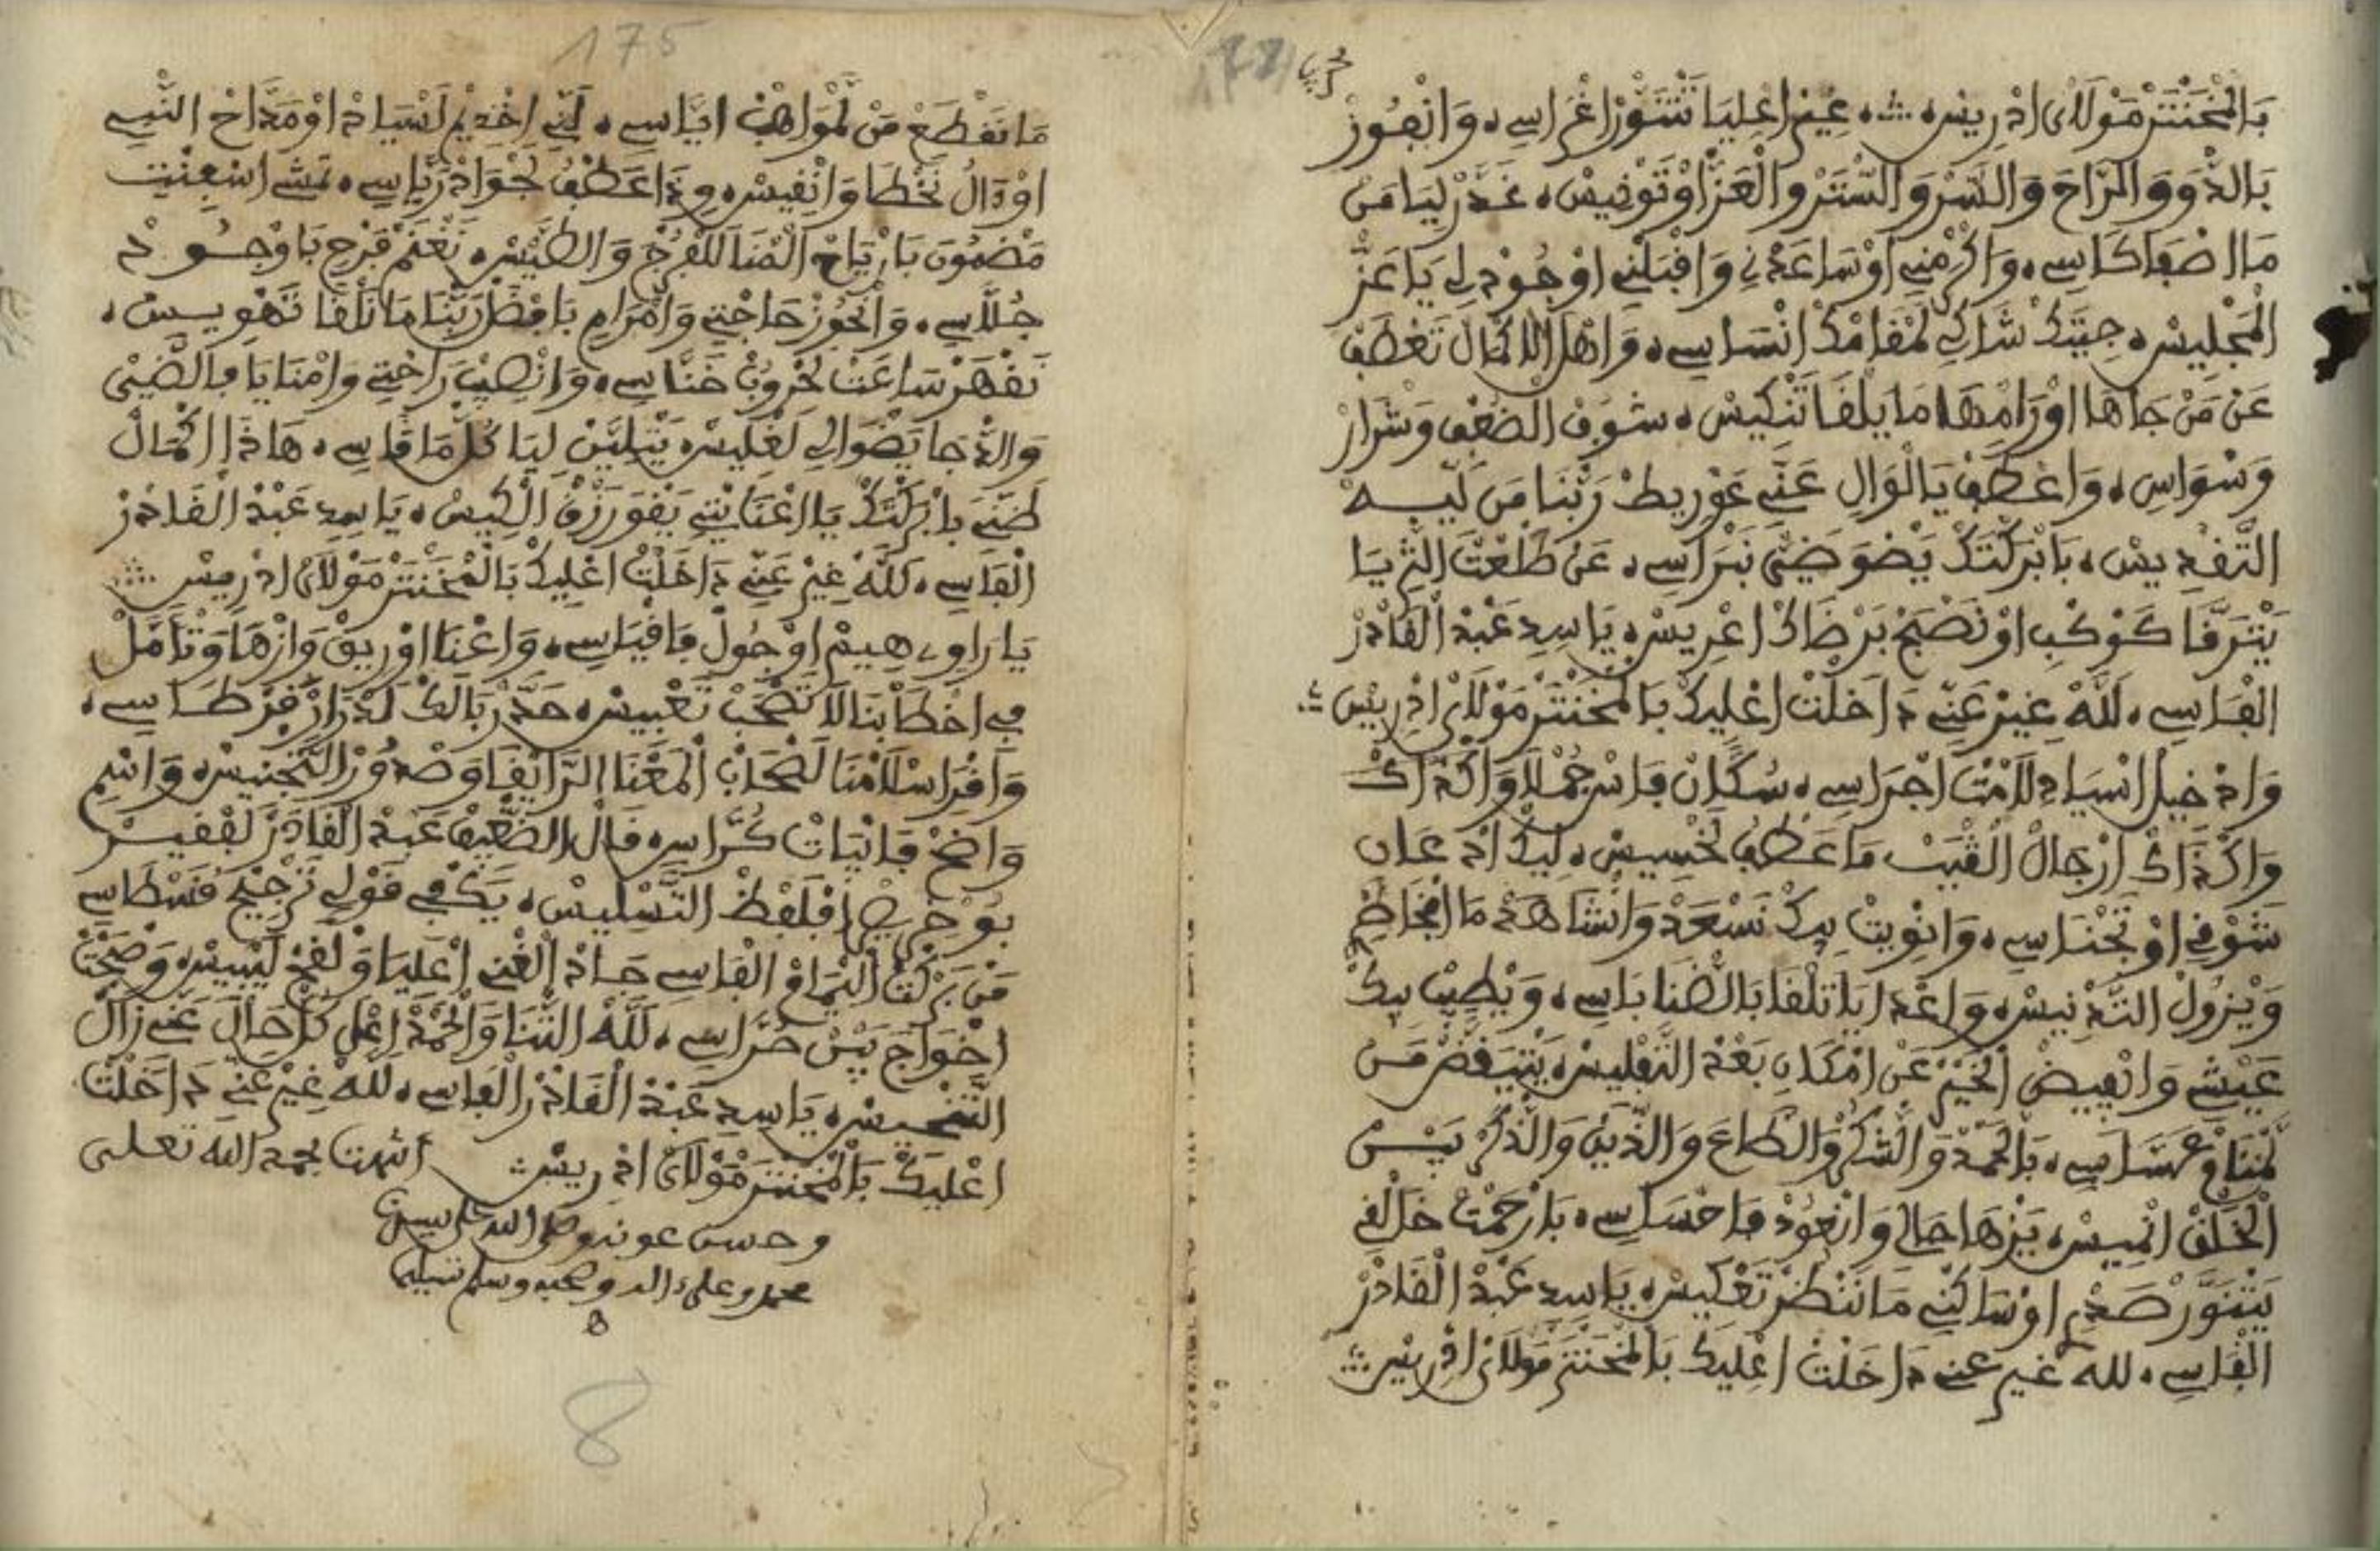 بَالْمَخْنْتَرْ مَوْلَايْ اِدْرِيسْ ۞ غِيرْ اعْلِيَا تَتْنَوَّرْ اغْرَاسِي ۞ وَانْفُوزْ
بَالدّْوَ وَالرَّاحَ وَالسّْرْ وَالسّْتَرْ وَالْعَزّْ اوْتَوْنِيسْ ۞ غَدَّرْ لِيَا مَنْ
مَا اصْفَا كَاسِي ۞ وَاكْرْمْنِي اوْسَاعَدْنِي وَاقْبَلْنِي اوْجُودْ لِي يَا عَزّْ
الْمَجْلِيسْ ۞ جِيتَكْ شَاكِي لَمْقَامَكْ انْسَاسِي ۞ وَاهْلْ الاكْمَالْ تَعْطَفْ
عَنْ مَنْ جَاهَا اوْرَامْهَا مَا يَلْقَا تَنْكِيسْ ۞ شُوفْ الضُعْفِ وَشْرَارْ
وَسْوَاسِي ۞ وَاعْطَفْ يَالْوَالِي عَنِّي عَوْرِيطْ رَبّْنَا مَنْ لِيهْ
التَّقْدِيسْ ۞ بَابْرَكْتَكْ يَضْوَ ضَيّْ نَبْرَاسِي ۞ عَنْ طَلْعْتْ الثّْرِيَا
يَتْرَقَّا كَوْكْبِي اوْنَصْبَحْ بَرْضَاكْ اعْرِيسْ ۞ يَاسِيدِ عَبْدْ الْقَادَرْ
الْفَاسِي ۞ لَلَّهْ غِيرْ عَنِّي دَاخَلْتْ اعْلِيكْ بَالْمَخْنْتَرْ مَوْلَايْ اِدْرِيسْ ۞
وَادْخِيلْ اَسْيَادِ لَامْتْ اجْرَاسِي ۞ سُكَّانْ فَاسْ جُمْلَا وَاكْذَاكْ
وَاكْذَاكْ ارْجَالْ الْغَيْبْ مَا عَطْفُ لَخْسِيسْ ۞ لِيكْ ادْعَانِ
شَوْقِي اوْتَخْنَاسِي ۞ وَانْوِيتْ بِكْ نَسْعَدْ وَانْشَاهَدْ مَا افْخَاطْرِي
وَيْزُولْ التَّدْنِيسْ ۞ وَاعْدَايَا تَلْقَا بَالضّْنَا بَاسِي ۞ وَيْطِيبْ بِيكْ
عَيْشِي وَانْفِيضْ الْخَيْرْ عَنْ امْكَانِ بَعْدْ التَّفْلِيسْ ۞ يَتْيَقَّضْ مَنْ
لَمْنَامْ عَسَّاسِي ۞ بَالْحَمْدْ وَالشّْكُرْ وَالطَّاعَ وَالدِّينْ وَالذّْكْرْ بَيْنْ
الْخَلْقْ انْمِيسْ ۞ يَزْهَا حَالِي وَانْعُودْ فَاحْسَاسِي ۞ بَارْحَمْتْ خَالْقِي
يَتْنَوَّرْ صَدْرِي اوْسَاكْنِي مَا نَنْضَرْ تَعْكِيسْ ۞ يَاسِيدِ عَبْدْ الْقَادَرْ
الْفَاسِي ۞ لله غير عني دَاخَلْتْ اعْلِيكْ بَالْمَخْنْتَرْ مَوْلَايْ اِدْرِيسْ ۞
175
مَا نَقْطَعْ مَنْ لَمْوَاهَبْ ايَّاسِي ۞ لَنِّي اخْدِيمْ لَسْيَادْ اوْمَدَّاحْ النّْبِي
اوْدَالُ نَخْطَا وَانْقِيسْ ۞ وِدَاعَطْفُ لَجْوَادْ رَيَّاسِي ۞ تَمْشِي اسْفِنْتِي
مَضْمُونَ بَارْيَاحْ الْهْنَا لَلْفْرُجْ وَالطَّيْسْ ۞ نَغْنَمْ فَرْحِي بَاوْجُودْ
جُلَّاسِي ۞ وَانْحُوزْ حَاجْتِي وَامْرَامِي بَافْضَلْ رَبّْنَا مَا نَلْقَا تَهْوِيسْ ۞
نَقْهَرْ سَاعَتْ لَحْرُوبْ خَنَّاسِي ۞ وَانْصِيبْ رَاحْتِي وَامْنَايَا فَالضّْيِيْ
وَالدّْجَا يَضْوَا لِي لَغْلِيسْ ۞ يَتْلِيَّنْ لِيَا كُلّْ مَا قَاسِي ۞ هَاذَا اكْمَالْ
ضَنِّي بَابْرَكْتَكْ يَا اعْنَايْتِي يَقْوَ رَزْقْ الْكِيسْ ۞ يَاسِيدِ عَبْدْ الْقَادَرْ
الْفَاسِي ۞ لَلَّهْ غِيرْ عَنِّي دَاخَلْتْ اعْلِيكْ بَالْمَخْنْتَرْ مَوْلَايْ اِدْرِيسْ ۞
يَارَاوِي هِيمْ اوْجُولْ فَاقْيَاسِي ۞ وَاغْنَا اوْرِيقْ وَازْهَا وَتْأَمَّلْ
فِي اخْطَابْنَا لَا تَصْحَبْ تَعْبِيسْ ۞ حَدَّرْ بَالَكْ لَدْرَارْ قَرْطَاسِي ۞
وَاقْرَا سْلَامْنَا لَصْحَابْ الْمَعْنَا الرَّايْقَا وَصْدُورْ التَّجْنِيسْ ۞ وَاسْمِي
وَاضَحْ فَابْيَاتْ كُرَّاسِي ۞ قَالْ الضَّعِيفْ عَبْدْ الْقَادَرْ لَفْقِيرْ
بُوخْرِيصْ افْلَفْظْ التَّسْلِيسْ ۞ يَكْفِي قَوْلِي تَرْجِيحْ قُسْطَاسِي
مَنْ بَرْكْتْ الْهْمَامْ الْفَاسِي جَادْ الْغْنِي اعْلِيَا وَلْقَحْ لَيْبِيسْ ۞ وَضْحَتْ
اخْوَاجْ بَيْنْ حُرَّاسِي ۞ لَلَّهْ الثّْنَا وَالْحَمْدْ اعْلَى كُلّْ حَالْ عَنِّي زَالْ
التَّنْحِيسْ ۞ يَاسِيدِ عَبْدْ الْقَادَرْ الْفَاسِي ۞ لله غِيرْ عَنِّي دَاخَلْتْ
اعْلِيكْ بَالْمَخْنْتَرْ مَوْلَايْ اِدْرِيسْ ۞ انتهت بحمد الله تعلى
وحسن عونه وصلى الله على سيدنا
محمد وعلى ءاله وصحبه وسلم تسليما
8